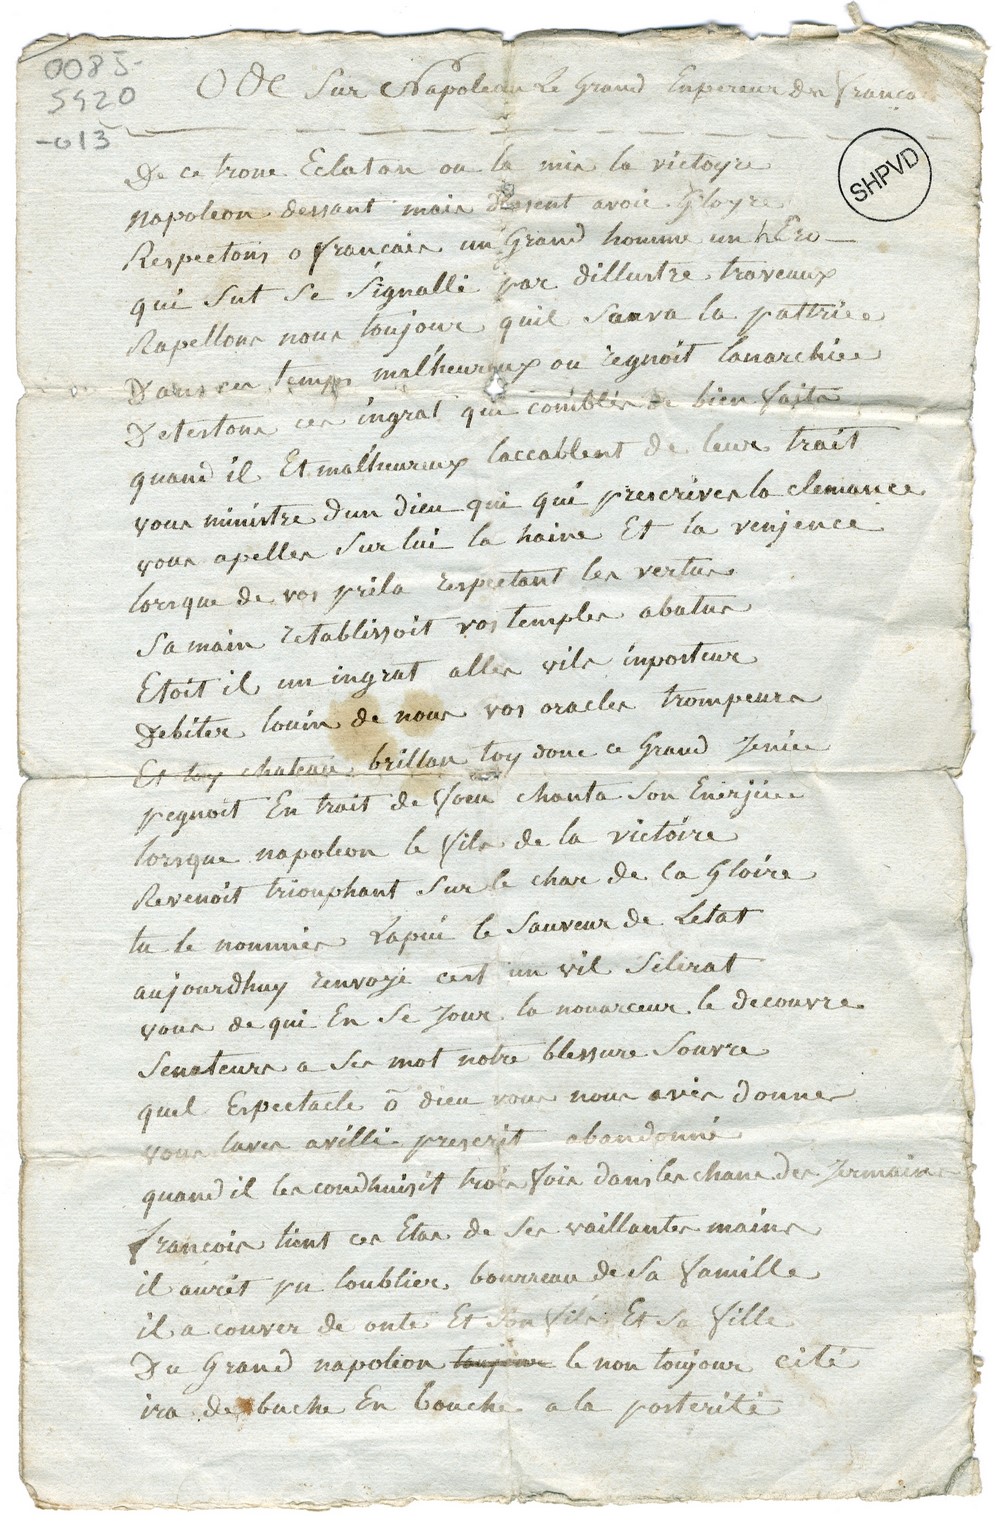 0085-
5920
-013
Ode Sur Napoleon Le Grand Enpereur des françois
SHPVD
De ce trone Eclatan ou la mis la victoyre
napoleon dessant mais dessent avoic Gloyre
Respectons o français un Grand homme un hEro
qui Sut Se Signallé par dillustre traveaux
Rapellons nous toujour quil Sauva la pattriee
Dans ces temps malheureux ou regnoit lanarchiee
Detestons ces ingrat qui comblés de bien faits
quand il Et malheureux laccablent de leur trait
vous ministre dun dieu qui qui prescrives la clemance
vous apelles Sur lui la haine Et la venjence
lorsque de vos prils respectant les vertus
Sa main retablissoit vos temples abatus
Etoit il un ingrat alles vils inposteur
Debiter louin de nous vos oracles trompeurs
Et toy chateau brillan toy donc ce Grand Jeniee
pegnoit En trait de foeu chanta Son Enerjiee
lorsque napoleon le fils de la victoire
Revenoit triouphant Sur le char de la Gloire
tu le nommes Lapui le Sauveur de Letat
aujourdhuy renvoyé cest un vil Selerat
vous de qui En Se Jour la nouarceur le decouvre
Senateurs a Ses mot notre blessure Souvre
quel Espectacle ô dieu vous nous avés donner
vous laves avilli prescrit abandonné
quand il les condhuisit trois fois dans les chans des Jermains
françois tient ces Etas de Ses vaillantes mains
il aurêt pu loublier bourreau de Sa famille
il a couver de onte Et Son fils Et Sa fille
Du Grand napoléon toujour le non toujour cité
ira de buche En bouche a la posterité